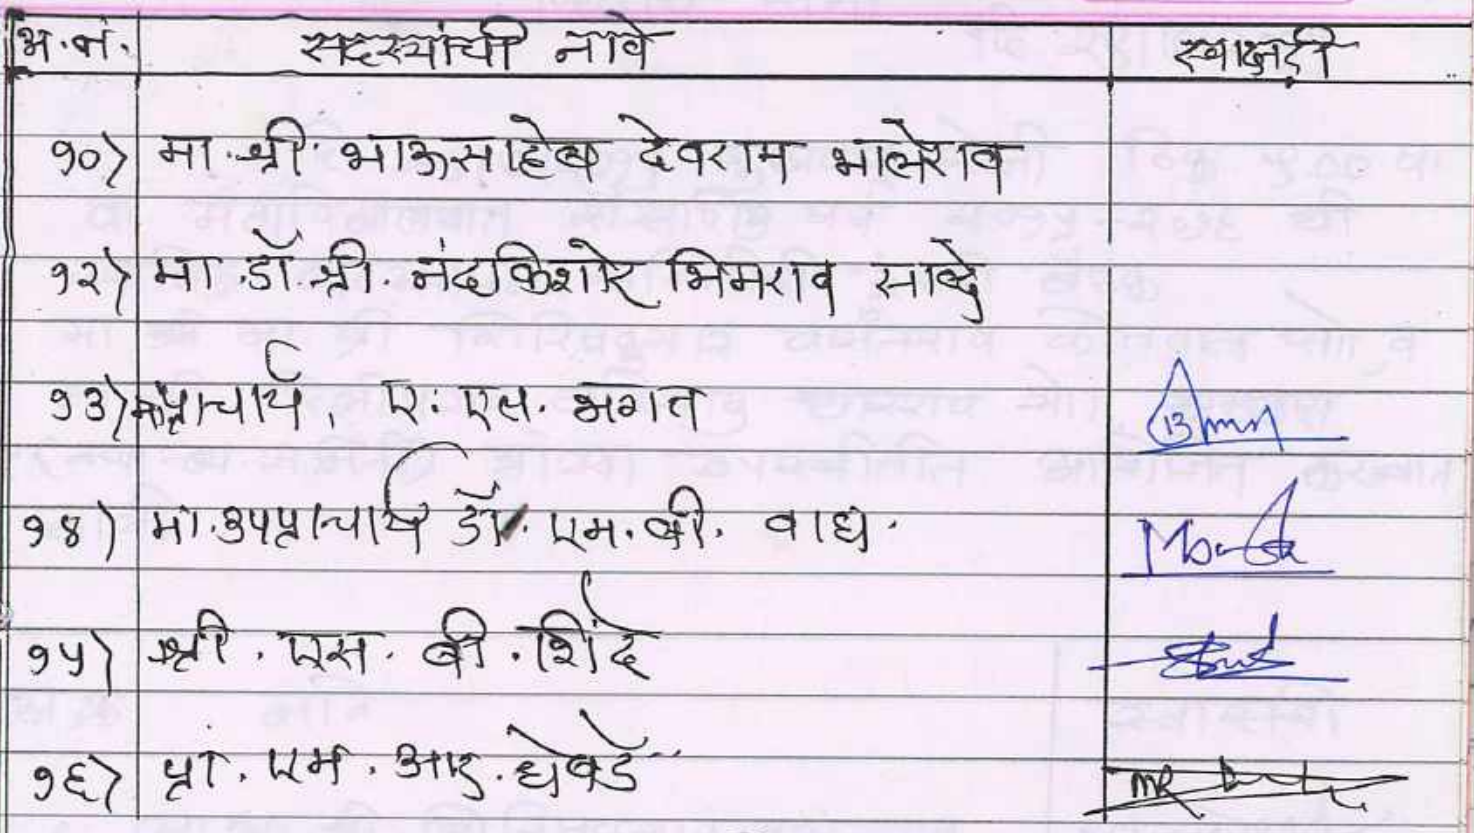 अ.नं. सदस्यांची नावे स्वाक्षरी
१०) मा.श्री. भाऊसाहेब देवराम भालेराव
१२) मा.डॉ.श्री. नंदकिशोर भिमराव साब्दे
१३) प्राचार्य, ए. एल. भगत
१४) मा.उपप्राचार्य डॉ. एम. बी. वाघ.
१५) श्री. एस. बी. शिंदे
१६) प्रा. एम. आर. घेवडे